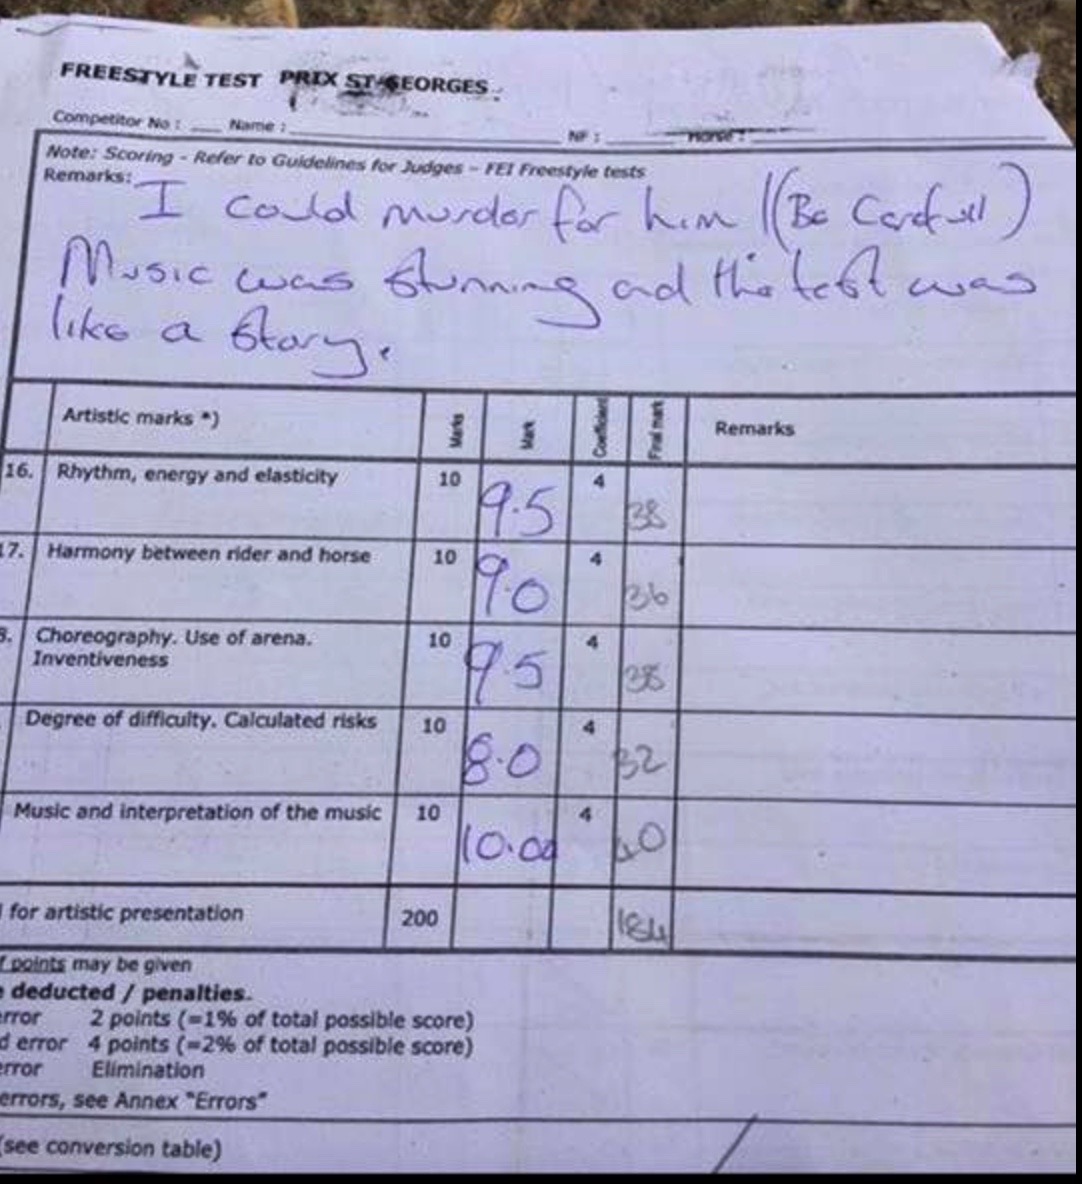 FREESTYLE TEST PRIX ST-GEORGES
Competitor No : Name : NF : Horse :
Note: Scoring - Refer to Guidelines for Judges – FEI Freestyle tests
Remarks:
I could murder for him !(Be Carefull)
Music was stunning and the test was
like a story.
Artistic marks *) Marks Mark Coefficient Final mark Remarks
16. Rhythm, energy and elasticity 10 9.5 4 38
17. Harmony between rider and horse 10 9.0 4 36
8. Choreography. Use of arena. 10 9.5 4 38
Inventiveness
Degree of difficulty. Calculated risks 10 8.0 4 32
Music and interpretation of the music 10 10.00 4 40
for artistic presentation 200 184
f points may be given
deducted / penalties.
error 2 points (=1% of total possible score)
d error 4 points (=2% of total possible score)
error Elimination
errors, see Annex "Errors"
(see conversion table)